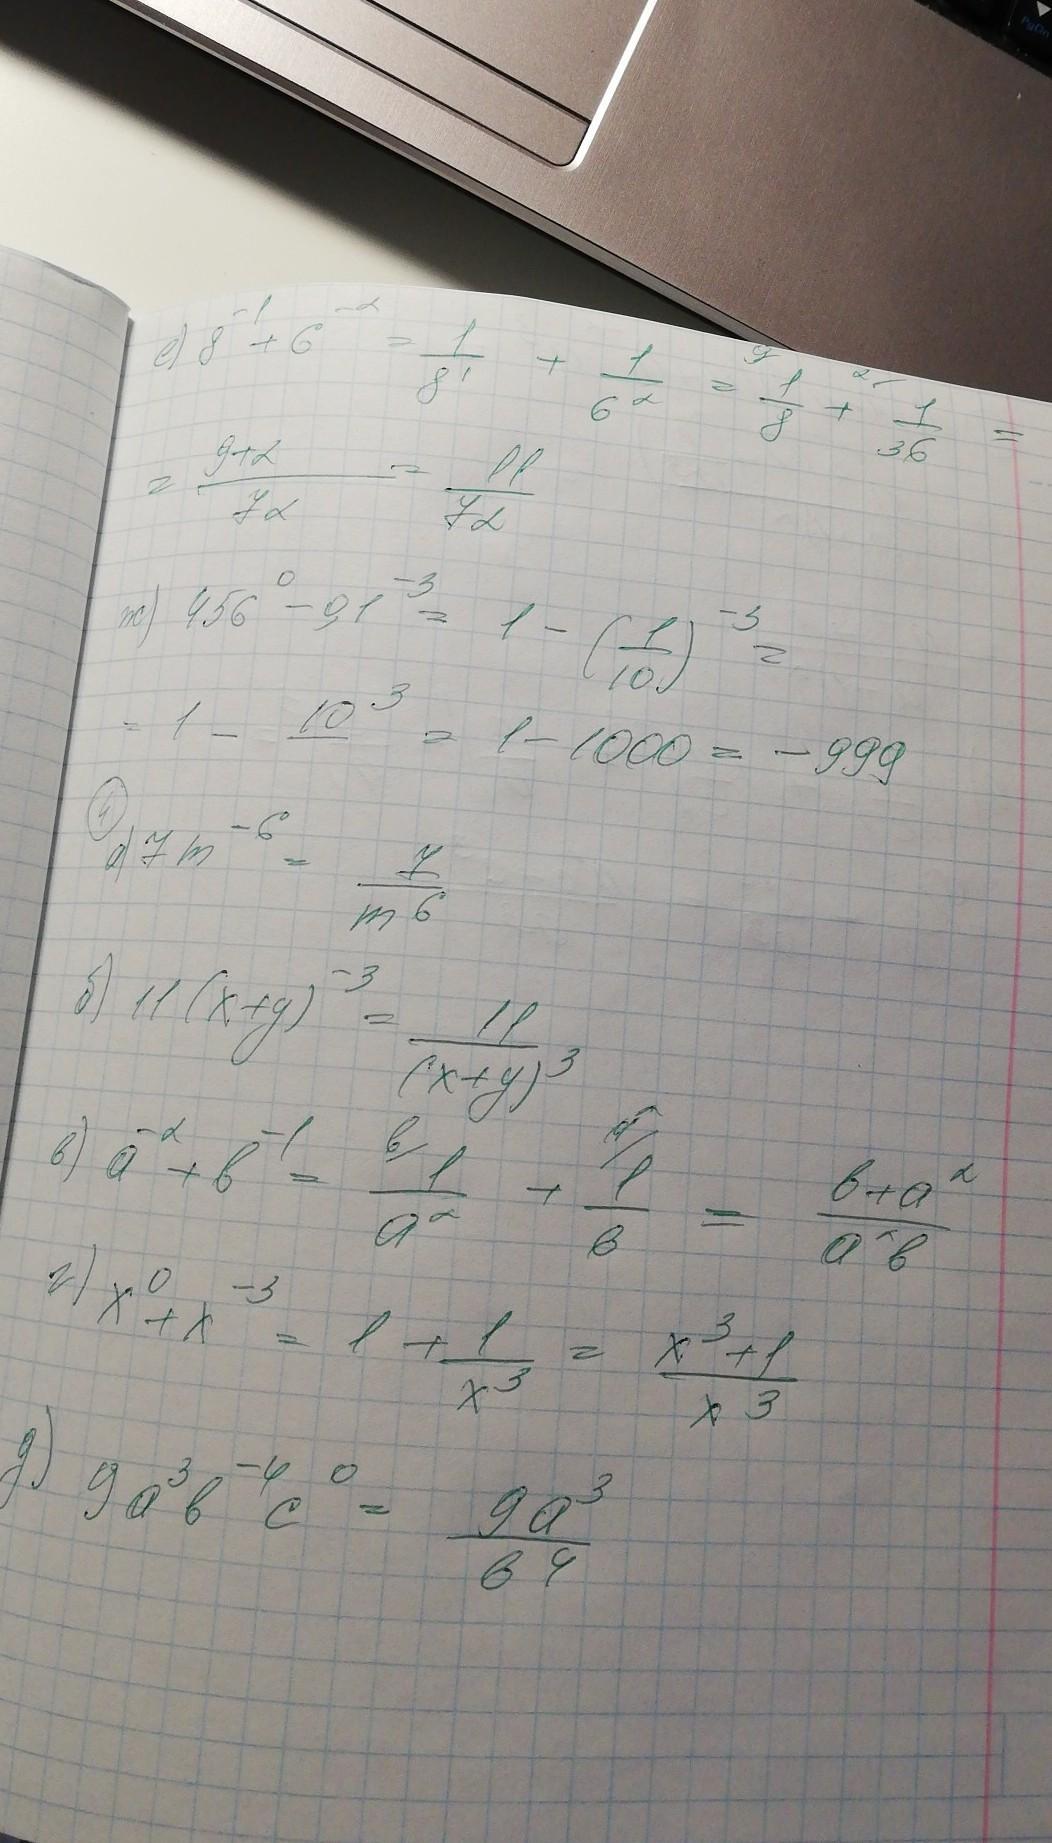 е) 8⁻¹ + 6⁻² = 1/8¹ + 1/6² = ⁹/1/8 + ²/1/36 =
= 9+2/72 = 11/72
ж) 456⁰ − 0,1⁻³ = 1 − (1/10)⁻³ =
= 1 − 10³/ = 1 − 1000 = −999
④
а) 7m⁻⁶ = 7/m⁶
б) 11(x+y)⁻³ = 11/(x+y)³
в) a⁻² + b⁻¹ = ᵇ/1/a² + ᵃ²/1/b = b+a²/a²b
г) x⁰ + x⁻³ = 1 + 1/x³ = x³+1/x³
д) 9a³b⁻⁴c⁰ = 9a³/b⁴